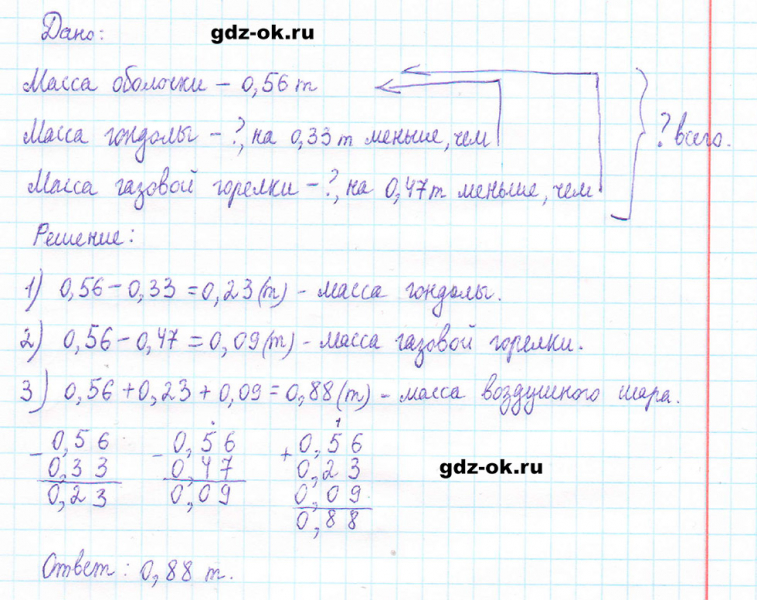 Дано:
gdz-ok.ru
Масса оболочки – 0,56 т
Масса гондолы – ?, на 0,33 т меньше, чем
? всего.
Масса газовой горелки – ?, на 0,47 т меньше, чем
Решение:
1) 0,56 – 0,33 = 0,23 (т) – масса гондолы.
2) 0,56 – 0,47 = 0,09 (т) – масса газовой горелки.
3) 0,56 + 0,23 + 0,09 = 0,88 (т) – масса воздушного шара.
– 0,56
0,33
0,23
– 0,56
0,47
0,09
1
+ 0,56
0,23
0,09
0,88
gdz-ok.ru
Ответ: 0,88 т.